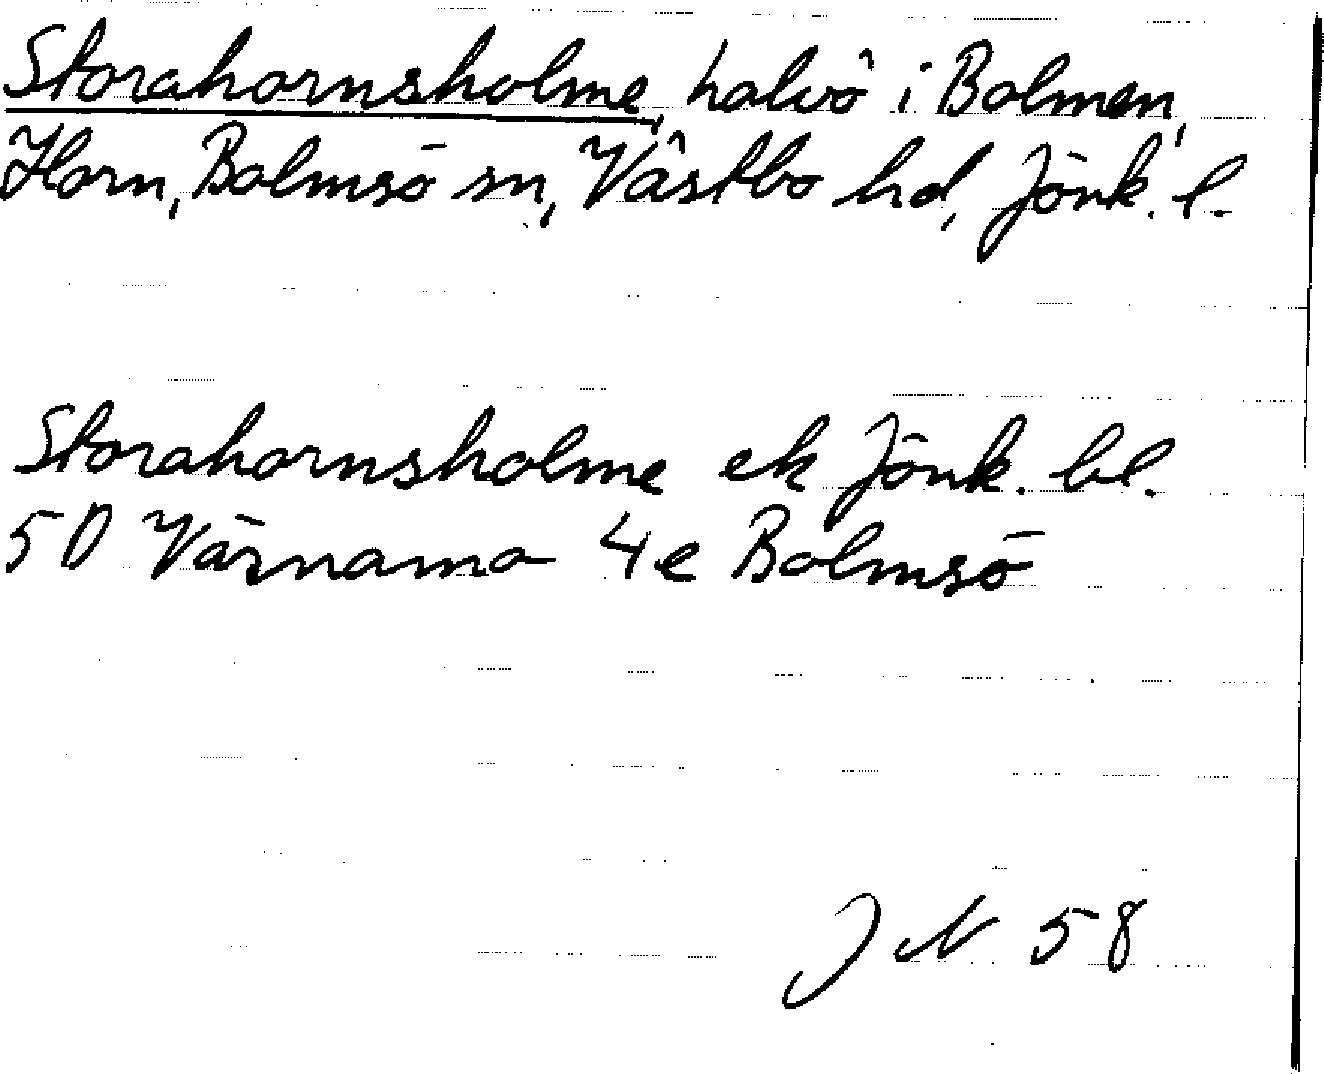 Storahornsholme, halvö i Bolmen,
Horn, Bolmsö sn, Västbo hd, Jönk. l.
Storahornsholme ek Jönk. bl.
50 Värnamo 4e Bolmsö
J N 58